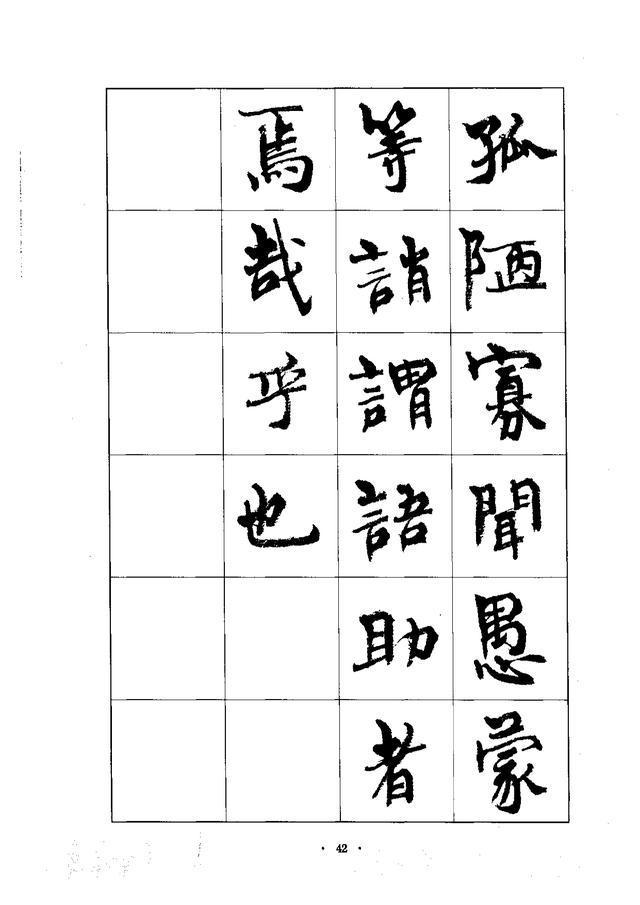 孤陋寡聞愚蒙
等誚謂語助者
焉哉乎也
· 42 ·